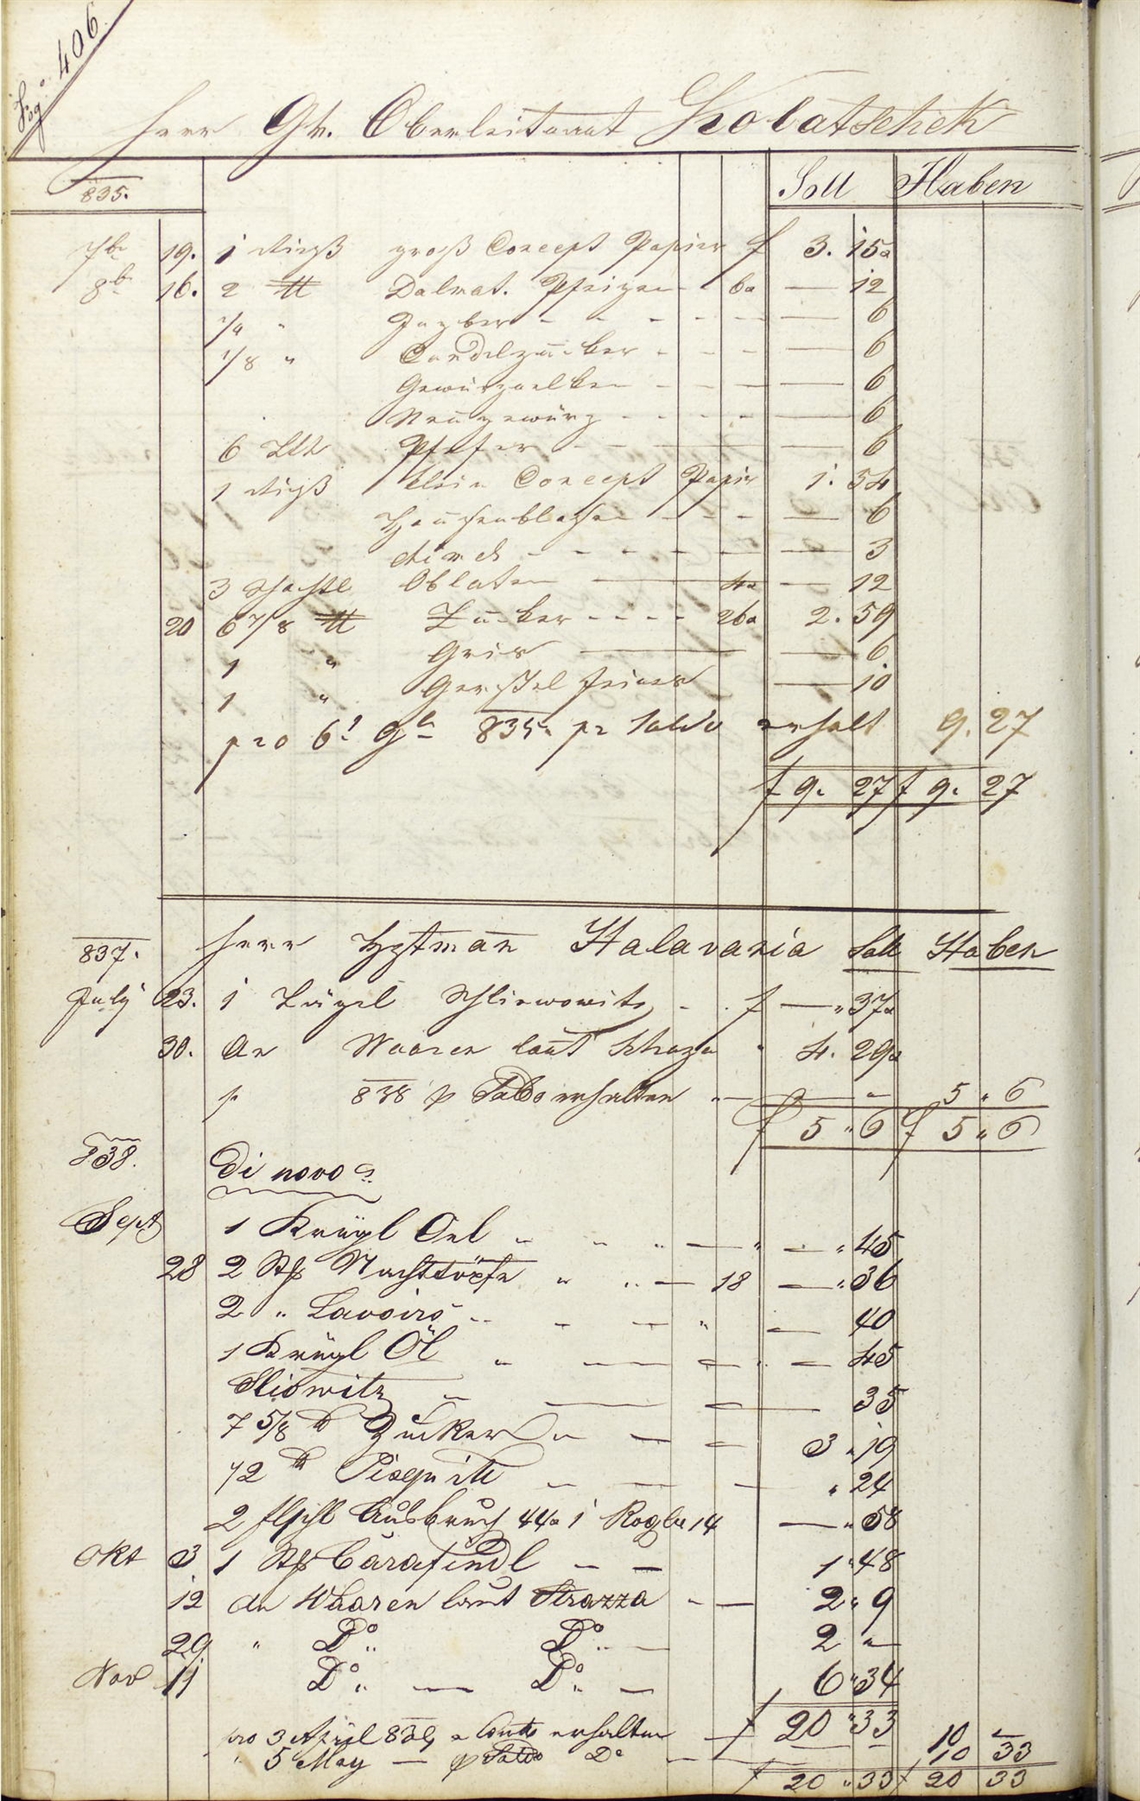 406
Herr Gr. Oberleitnant Kobatschek
835. Soll Haben
7br 19. 1 Rieß groß Concept Papier f 3. 15
8br 16. 2 ℔ Dalmat. Feigen 6 — 12
1/4 " Ingber — 6
1/8 " Candelzucker — 6
Gewürznelken — 6
Neugewürz — 6
6 Lth Pfefer — 6
1 Rieß klein Concept Papir 1. 54
Hausenblasen — 6
— 3
3 Schachtl Oblaten 4 — 12
20 6 7/8 ℔ Zucker 26 2. 59
1 " Gries — 6
1 " Gerstel feiner — 10
pro 6t 9br 835 pr Saldo erhalt 9. 27
f 9. 27 f 9. 27
837. Herr Hptman Halavania Soll Haben
July 23. 1 Krügel Schliwowitz f — " 37
30. An Waaren laut Strazza 4. 29
p 838 p Saldo erhalten 5 " 6
f 5 " 6 f 5 " 6
838. Di novo
Sept 1 Krügl Oel — " 45
28 2 Stk Nachttöpfe 18 — " 36
2 " Lavoirs — 40
1 Krügl Öl — 45
Sliowitz 35
7 5/8 ℔ Zucker 3 " 19
1/2 ℔ " 24
2 flschl Ausbruch 44 1 14 — " 58
Okt 3 1 Stk Carafindl 1 " 48
12 An Waaren laut Strazza 2 " 9
29. " Do Do 2 " —
Nov 11 Do " — Do " — 6 " 34
f 20 " 33
pro 3 April 839 a Conto erhalten 10 —
" 5 May — p Saldo Do 10 33
f 20 " 33 f 20 33